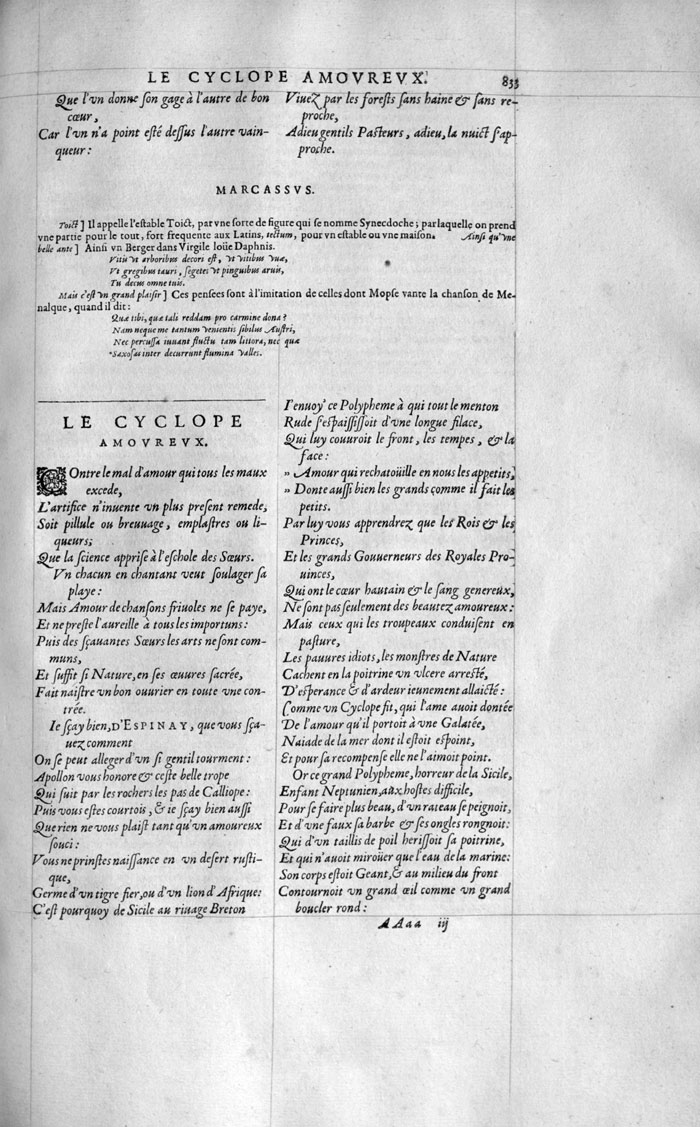 LE CYCLOPE AMOVREVX.
833
Que l'vn donne son gage à l'autre de bon
cœur,
Car l'vn n'a point esté dessus l'autre vain-
queur:
Viuez par les forests sans haine & sans re-
proche,
Adieu gentils Pasteurs, adieu, la nuict s'ap-
proche.
MARCASSVS.
Toict ] Il appelle l'estable Toict, par vne sorte de figure qui se nomme Synecdoche; par laquelle on prend
vne partie pour le tout, fort frequente aux Latins, tectum, pour vn estable ou vne maison. Ainsi qu'vne
belle ante ] Ainsi vn Berger dans Virgile loüe Daphnis.
Vitis vt arboribus decori est, vt vitibus vuæ,
Vt gregibus tauri, segetes vt pinguibus aruis,
Tu decus omne tuis.
Mais c'est vn grand plaisir ] Ces pensees sont à l'imitation de celles dont Mopse vante la chanson de Me-
nalque, quand il dit:
Quæ tibi, quæ tali reddam pro carmine dona?
Nam neque me tantum venientis sibilus Austri,
Nec percussa iuuant fluctu tam littora, nec quæ
Saxosas inter decurrunt flumina valles.
LE CYCLOPE
AMOVREVX.
COntre le mal d'amour qui tous les maux
excede,
L'artifice n'inuente vn plus present remede,
Soit pillule ou breuuage, emplastres ou li-
queurs;
Que la science apprise à l'eschole des Sœurs.
Vn chacun en chantant veut soulager sa
playe:
Mais Amour de chansons friuoles ne se paye,
Et ne preste l'aureille à tous les importuns:
Puis des sçauantes Sœurs les arts ne sont com-
muns,
Et suffit si Nature, en ses œuures sacrée,
Fait naistre vn bon ouurier en toute vne con-
trée.
Ie sçay bien, D'ESPINAY, que vous sça-
uez comment
On se peut alleger d'vn si gentil tourment:
Apollon vous honore & ceste belle trope
Qui suit par les rochers les pas de Calliope:
Puis vous estes courtois, & ie sçay bien aussi
Que rien ne vous plaist tant qu'vn amoureux
souci:
Vous ne prinstes naissance en vn desert rusti-
que,
Germe d'vn tigre fier, ou d'vn lion d'Afrique:
C'est pourquoy de Sicile au riuage Breton
I'enuoy' ce Polypheme à qui tout le menton
Rude s'espaississoit d'vne longue filace,
Qui luy couuroit le front, les tempes, & la
face:
» Amour qui rechatoüille en nous les appetits,
» Donte aussi bien les grands comme il fait les
petits.
Par luy vous apprendrez que les Rois & les
Princes,
Et les grands Gouuerneurs des Royales Pro-
uinces,
Qui ont le cœur hautain & le sang genereux,
Ne sont pas seulement des beautez amoureux:
Mais ceux qui les troupeaux conduisent en
pasture,
Les pauures idiots, les monstres de Nature
Cachent en la poitrine vn vlcere arresté,
D'esperance & d'ardeur ieunement allaicté:
Comme vn Cyclope fit, qui l'ame auoit dontée
De l'amour qu'il portoit à vne Galatée,
Naiade de la mer dont il estoit espoint,
Et pour sa recompense elle ne l'aimoit point.
Or ce grand Polypheme, horreur de la Sicile,
Enfant Neptunien, aux hostes difficile,
Pour se faire plus beau, d'vn rateau se peignoit,
Et d'vne faux sa barbe & ses ongles rongnoit:
Qui d'vn taillis de poil herissoit sa poitrine,
Et qui n'auoit miroüer que l'eau de la marine:
Son corps estoit Geant, & au milieu du front
Contournoit vn grand œil comme vn grand
boucler rond:
AAaa iij